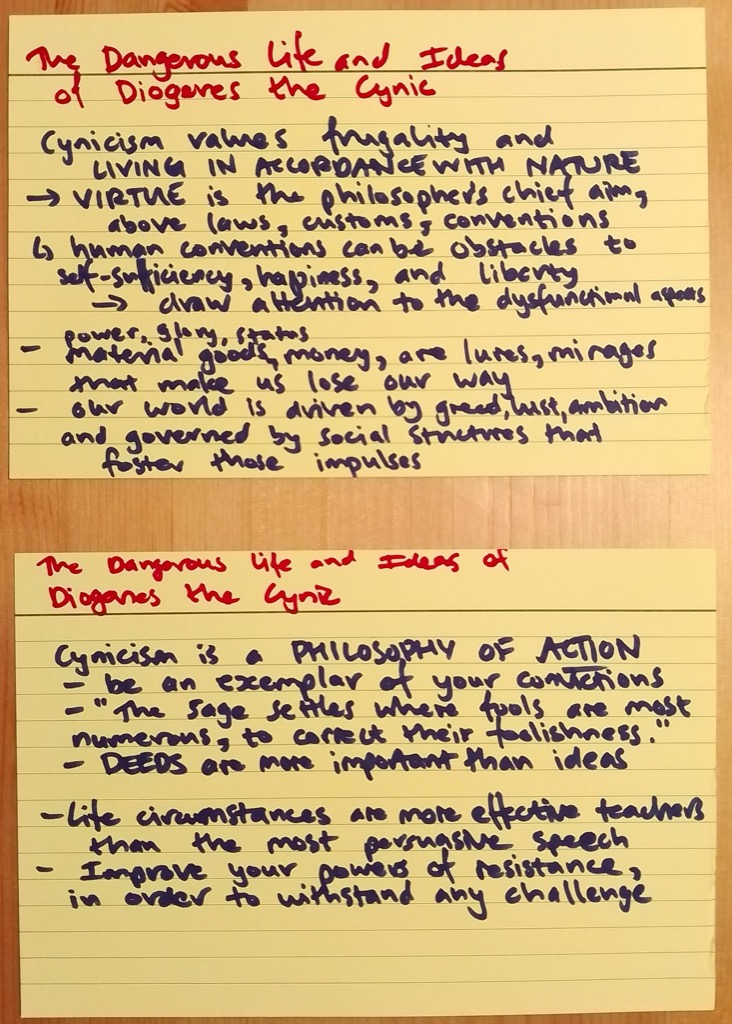 The Dangerous Life and Ideas
of Diogenes the Cynic
Cynicism values frugality and
LIVING IN ACCORDANCE WITH NATURE
→ VIRTUE is the philosopher's chief aim,
above laws, customs, conventions
↳ human conventions can be obstacles to
self-sufficiency, happiness, and liberty
→ draw attention to the dysfunctional aspects
power, glory, status
- material goods, money, are lures, mirages
that make us lose our way
- our world is driven by greed, lust, ambition
and governed by social structures that
foster those impulses
The Dangerous Life and Ideas of
Diogenes the Cynic
Cynicism is a PHILOSOPHY OF ACTION
- be an exemplar of your convictions
- "The sage settles where fools are most
numerous, to correct their foolishness."
- DEEDS are more important than ideas
- Life circumstances are more effective teachers
than the most persuasive speech
- Improve your powers of resistance,
in order to withstand any challenge